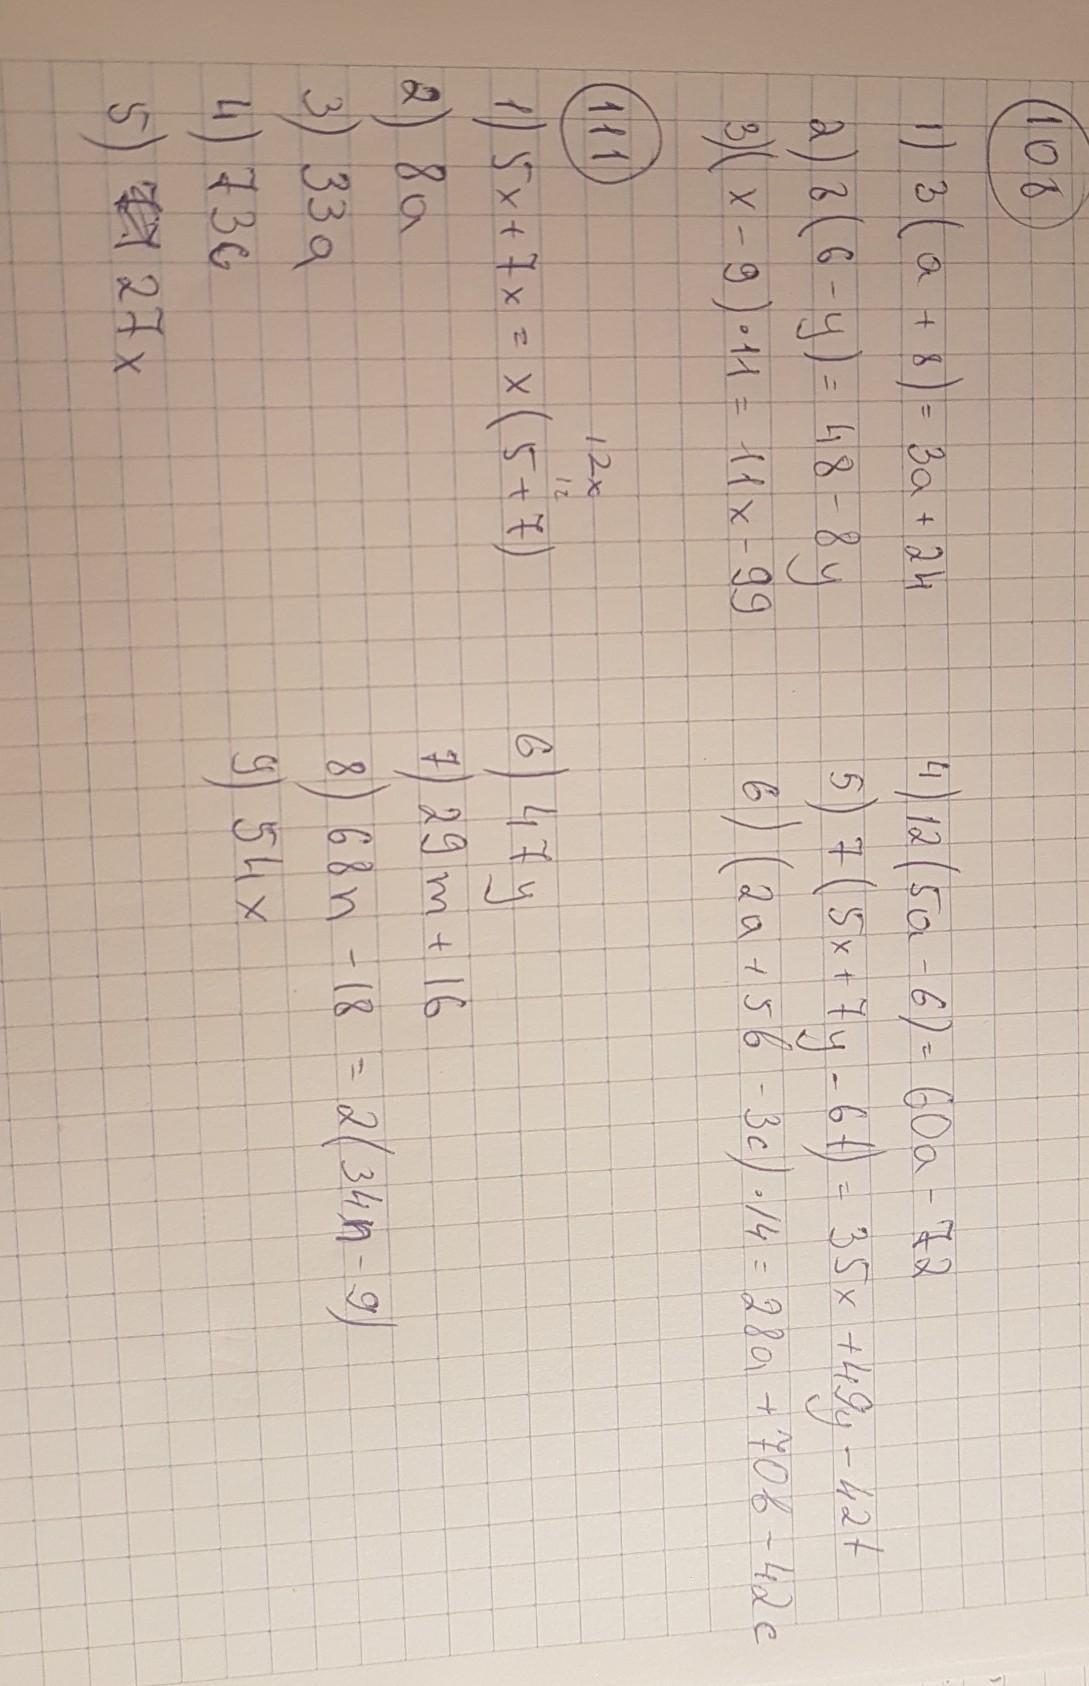 108
1) 3(a + 8) = 3a + 24
2) 8(6 - y) = 48 - 8y
3) (x - 9) · 11 = 11x - 99
4) 12(5a - 6) = 60a - 72
5) 7(5x + 7y - 6t) = 35x + 49y - 42t
6) (2a + 5b - 3c) · 14 = 28a + 70b - 42c
111
12x
12
1) 5x + 7x = x(5 + 7)
2) 8a
3) 33a
4) 73c
5) 27x
6) 47y
7) 29m + 16
8) 68n - 18 = 2(34n - 9)
9) 54x